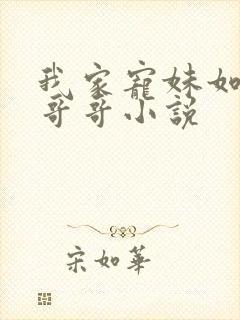 我家寵妹如
哥哥小說
宋如華